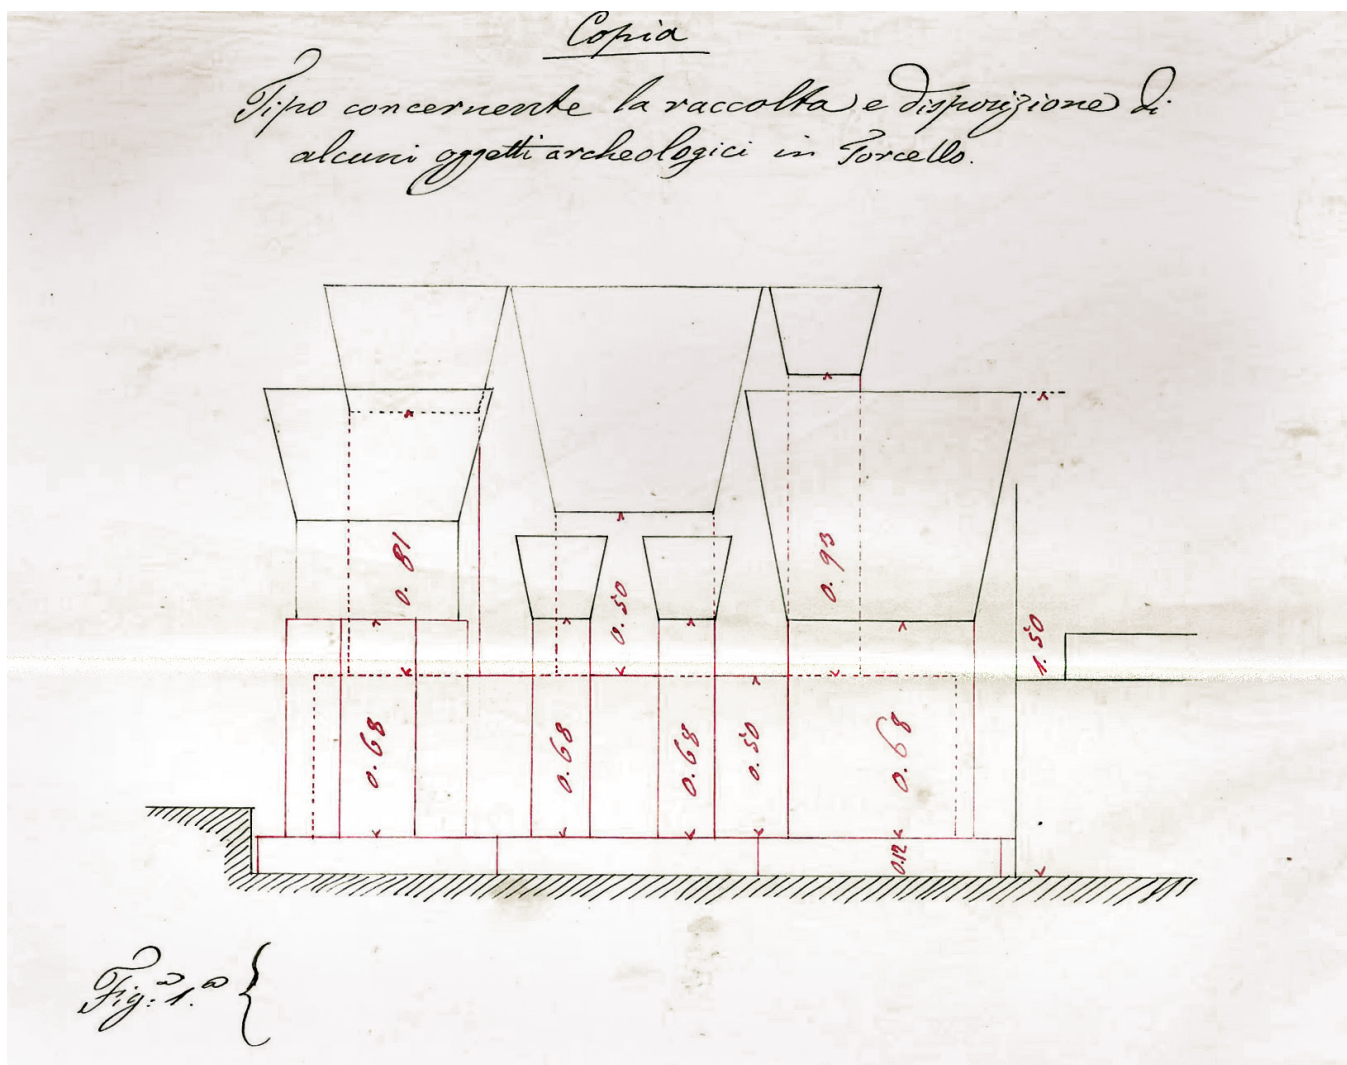 Copia
Tipo concernente la raccolta e disposizione di
alcuni oggetti archeologici in Torcello.
0.81
0.93
0.50
1.50
0.68
0.68
0.68
0.50
0.68
0.12
Fig.ª 1.ª